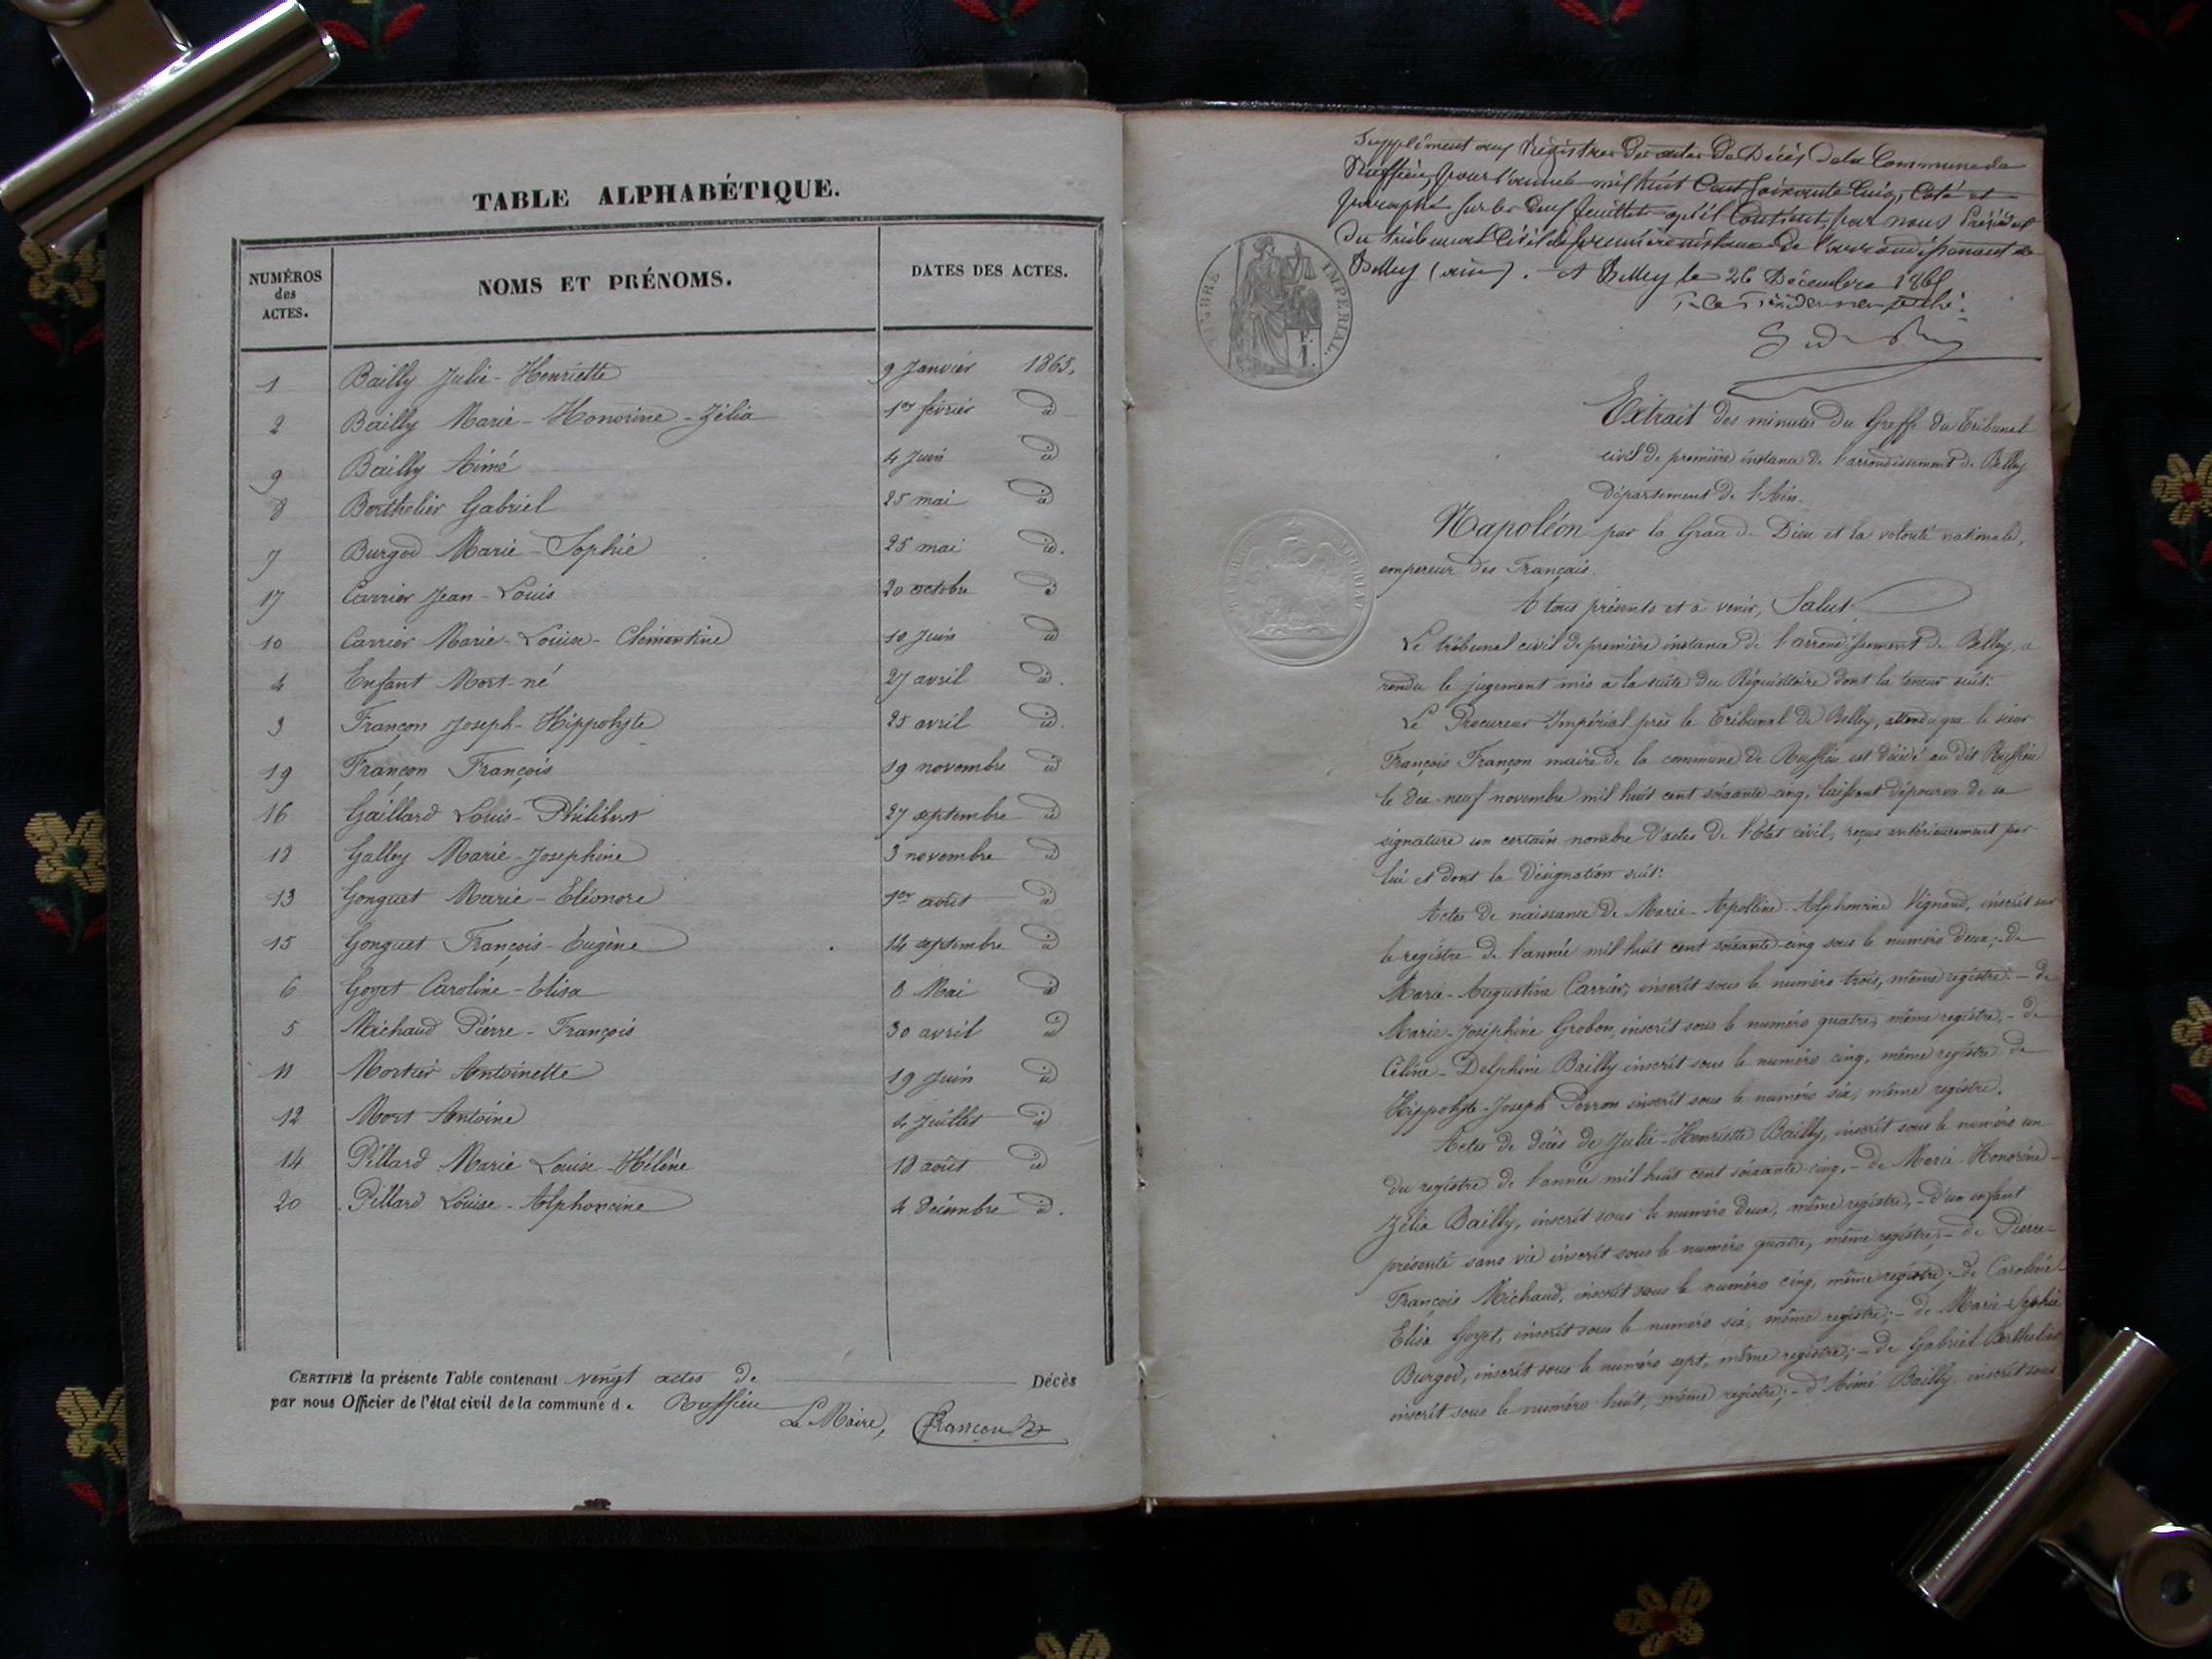 TABLE ALPHABÉTIQUE.
NUMÉROS des ACTES. NOMS ET PRÉNOMS. DATES DES ACTES.
1 Bailly Julie-Henriette 9 Janvier 1865.
2 Bailly Marie-Honorine-Zélia 1er février id
9 Bailly Aimé 4 Juin id
8 Berthelier Gabriel 25 mai id
7 Burgod Marie-Sophie 25 mai id.
17 Carrier Jean-Louis 20 octobre id
10 Carrier Marie-Louise-Clémentine 10 Juin id
4 Enfant Mort-né 27 avril id.
3 Françon Joseph-Hippolyte 25 avril id.
19 Françon François 19 novembre id
16 Gaillard Louis-Philibert 27 septembre id
18 Galley Marie-Josephine 3 novembre id
13 Gonguet Marie-Eléonore 1er août id
15 Gonguet François-Eugène 14 septembre id
6 Goyet Caroline-Elisa 8 Mai id
5 Michaud Pierre-François 30 avril id
11 Mortier Antoinette 19 Juin id
12 Mort Antoine 4 Juillet id
14 Pillard Marie Louise-Hélène 18 août id
20 Pillard Louise-Alphonsine 4 décembre id.
CERTIFIÉ la présente Table contenant vingt actes de Décès
par nous Officier de l'état civil de la commune d. Ruffieu
Le Maire, Françon
Supplément aux Registres des actes de Décès de la Commune de
Ruffieu, pour l'année mil huit Cent Soixante Cinq, Coté et
paraphé sur les deux feuillets qu'il Contient, par nous Président
du tribunal Civil de première instance de l'arrondissement de
Belley (ain). A Belley le 26 Décembre 1865
P. le Président empêché:
TIMBRE IMPÉRIAL.
Extrait des minutes du Greffe du Tribunal
civil de première instance de l'arrondissement de Belley
département de l'Ain.
Napoléon par la Grace de Dieu et la volonté nationale,
empereur des Français.
A tous présents et à venir, Salut.
Le tribunal civil de première instance de l'arrondissement de Belley, a
rendu le jugement mis à la suite du Réquisitoire dont la teneur suit:
Le Procureur Impérial près le Tribunal de Belley, attendu que le sieur
François Françon maire de la commune de Ruffieu est décédé au dit Ruffieu
le dix-neuf novembre mil huit cent soixante-cinq, laissant dépourvu de sa
signature un certain nombre d'actes de l'Etat civil, reçus antérieurement par
lui et dont la désignation suit:
Actes de naissance de Marie-Apolline-Alphonsine Vignand, inscrit sur
le registre de l'année mil huit cent soixante-cinq sous le numéro deux; - de
Marie-Augustine Carrier, inscrit sous le numéro trois, même registre: - de
Marie-Joséphine Grobon, inscrit sous le numéro quatre, même registre, - de
Céline-Delphine Bailly inscrit sous le numéro cinq, même registre de
Hippolyte-Joseph Perron inscrit sous le numéro six, même registre.
Actes de décès de Julie-Henriette Bailly, inscrit sous le numéro un
du registre de l'année mil huit cent soixante-cinq, - de Marie-Honorine-
Zélia Bailly, inscrit sous le numéro deux, même registre, - d'un enfant
présenté sans vie inscrit sous le numéro quatre, même registre, - de Pierre-
François Michaud, inscrit sous le numéro cinq, même registre; - de Caroline-
Elisa Goyet, inscrit sous le numéro six, même registre; - de Marie-Sophie
Burgod, inscrit sous le numéro sept, même registre; - de Gabriel Berthelier
inscrit sous le numéro huit, même registre; - d'Aimé Bailly inscrit sous